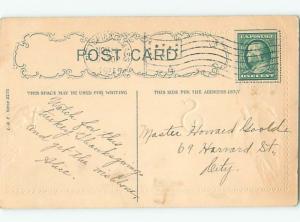 POST CARD
U.S. POSTAGE
ONE CENT
THIS SPACE MAY BE USED FOR WRITING
THIS SIDE FOR THE ADDRESS ONLY
Watch for this
turkey Thanksgiving
and get the wishbone
Master Howard Goolds
69 Harvard St,
City.